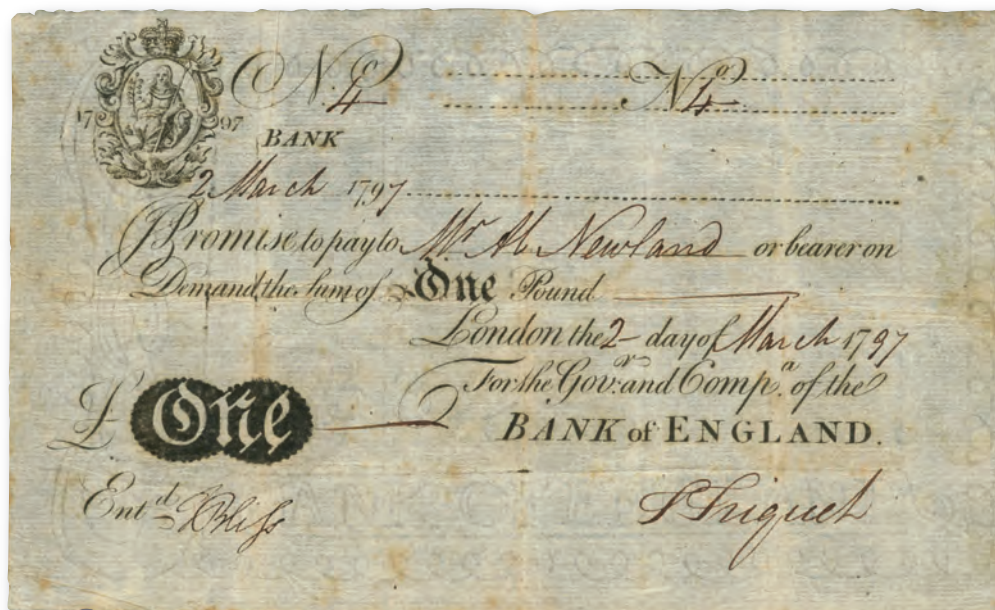 No. 4 No. 4
1797
BANK
2 March 1797
I Promise to pay to Mr. Ab Newland or bearer on
Demand the Sum of One Pound
London the 2 day of March 1797
For the Govr. and Compa. of the
£ One
BANK of ENGLAND.
Entd.